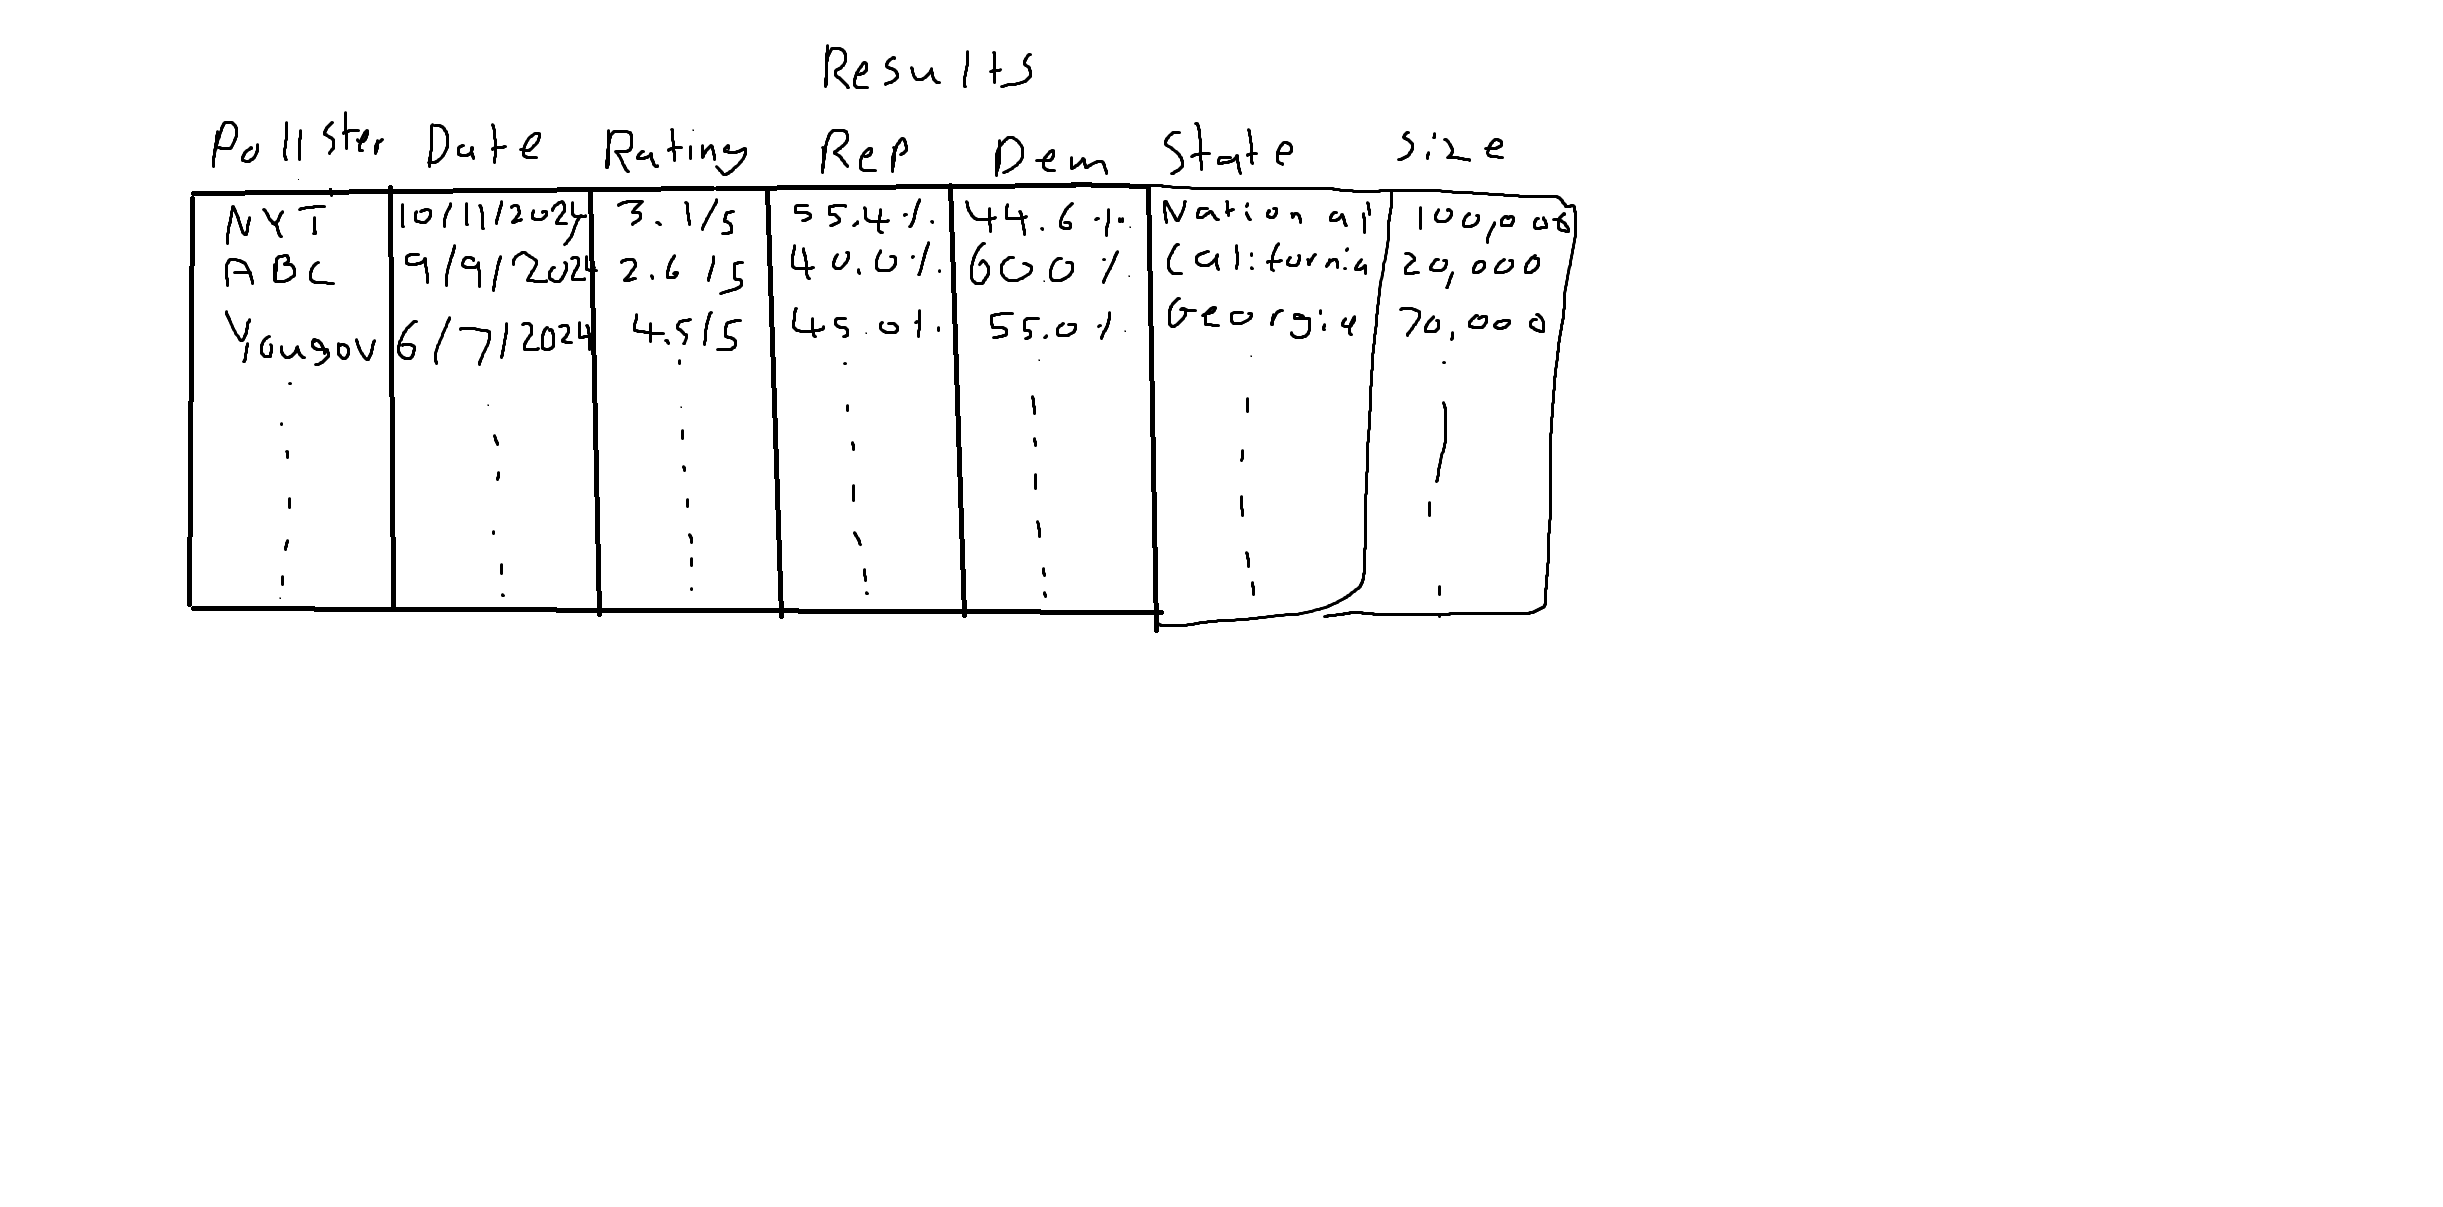 Results
Pollster Date Rating Rep Dem State Size
NYT 10/11/2024 3.1/5 55.4% 44.6% National 100,000
ABC 9/9/2024 2.6/5 40.0% 60.0% California 20,000
Yougov 6/7/2024 4.5/5 45.0% 55.0% Georgia 70,000